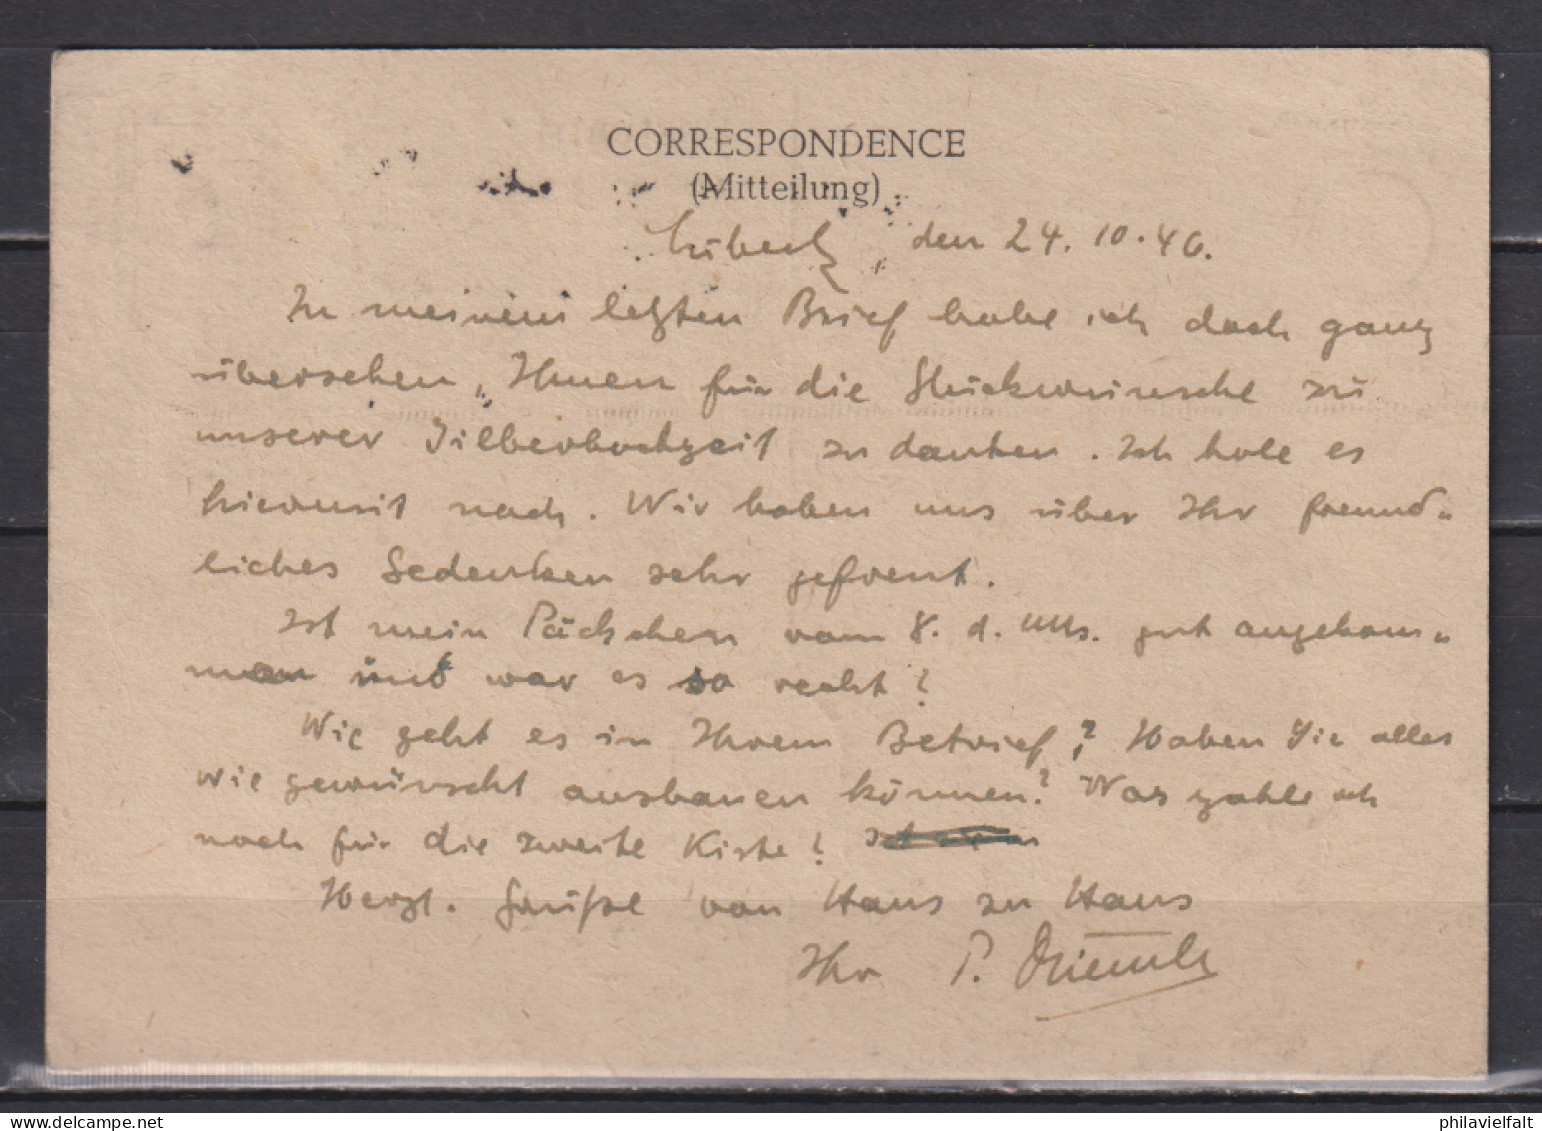 CORRESPONDENCE
(Mitteilung)
Lübeck, den 24.10.46.
In meinem letzten Brief habe ich doch ganz
übersehen, Ihnen für die Glückwünsche zu
unserer Silberhochzeit zu danken. Ich hole es
hiermit nach. Wir haben uns über Ihr freund-
liches Gedenken sehr gefreut.
Ist mein Päckchen vom 8. d. Mts. gut angekom-
men und war es so recht?
Wie geht es in Ihrem Betrieb? Haben Sie alles
wie gewünscht ausbauen können? Was zahle ich
noch für die zweite Kiste?
Herzl. Grüße von Haus zu Haus
Ihr P.
philavielfalt